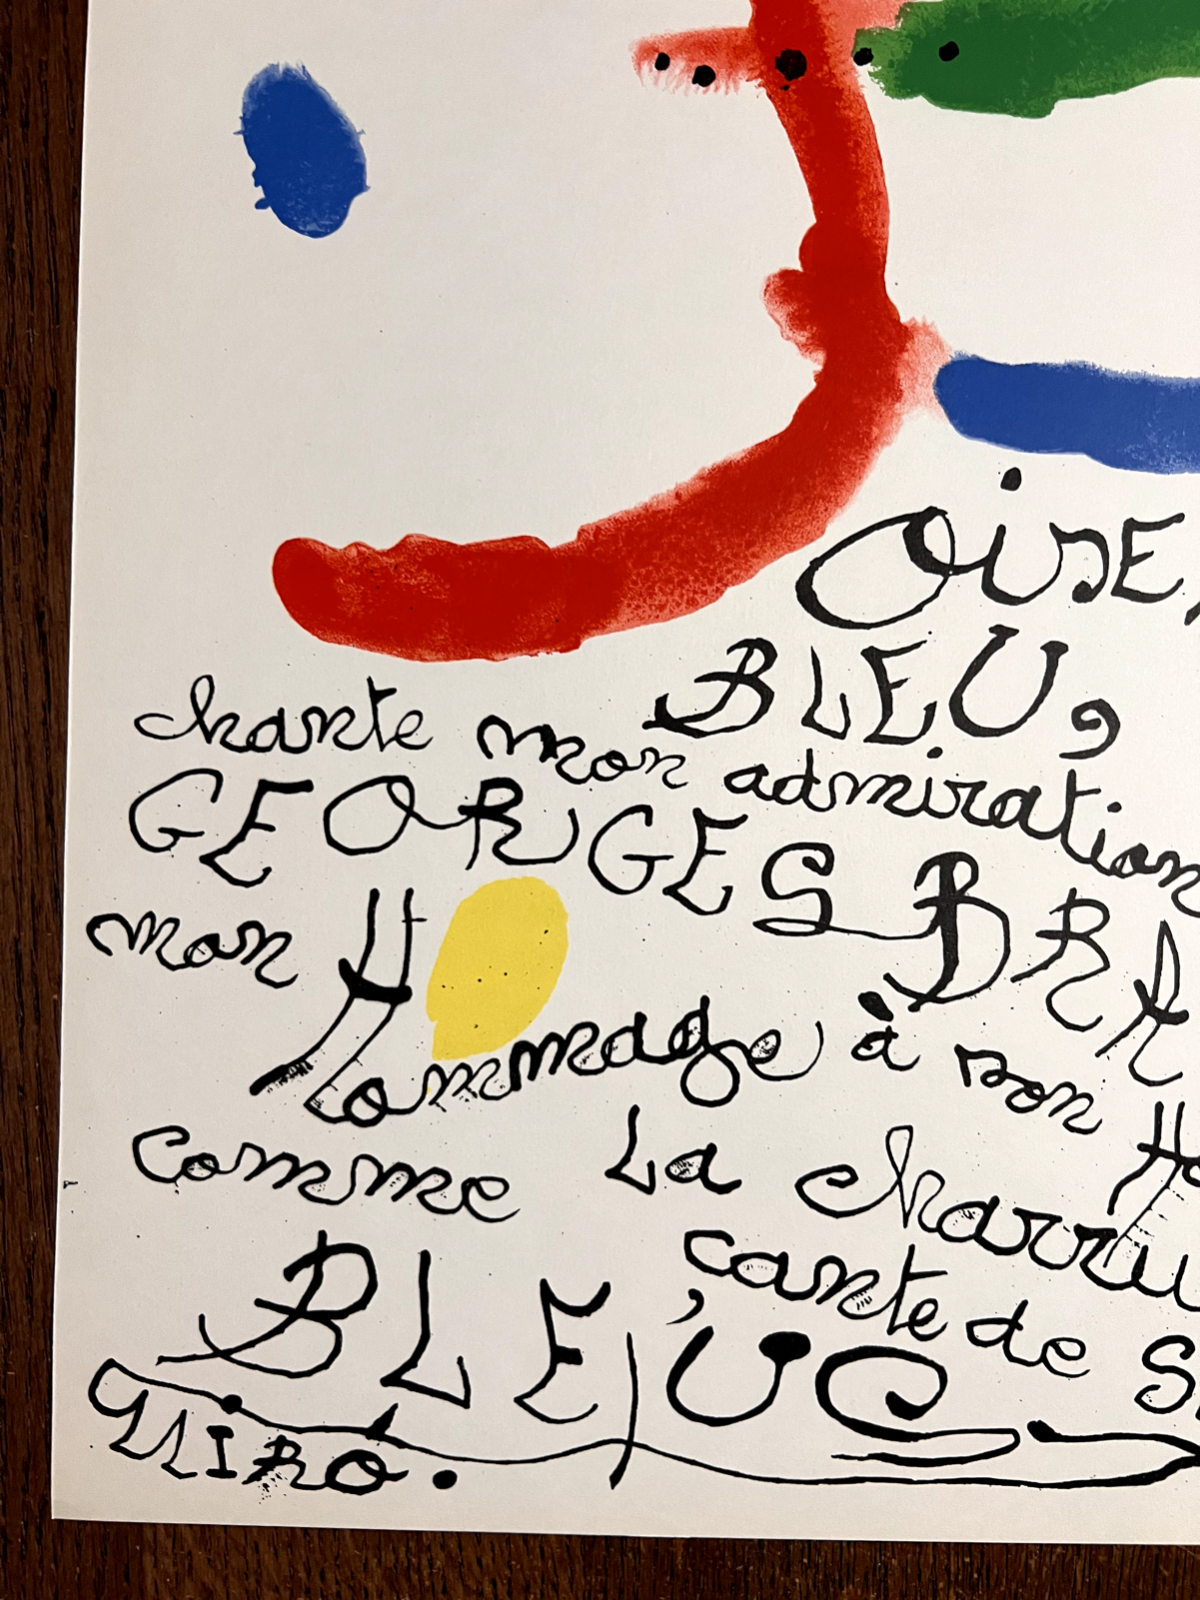 OisE
BLEU,
chante mon admiration
GEORGES BRA
mon Hommage à son Ho
comme La charru
cante de S
BLEUE
MIRÓ.